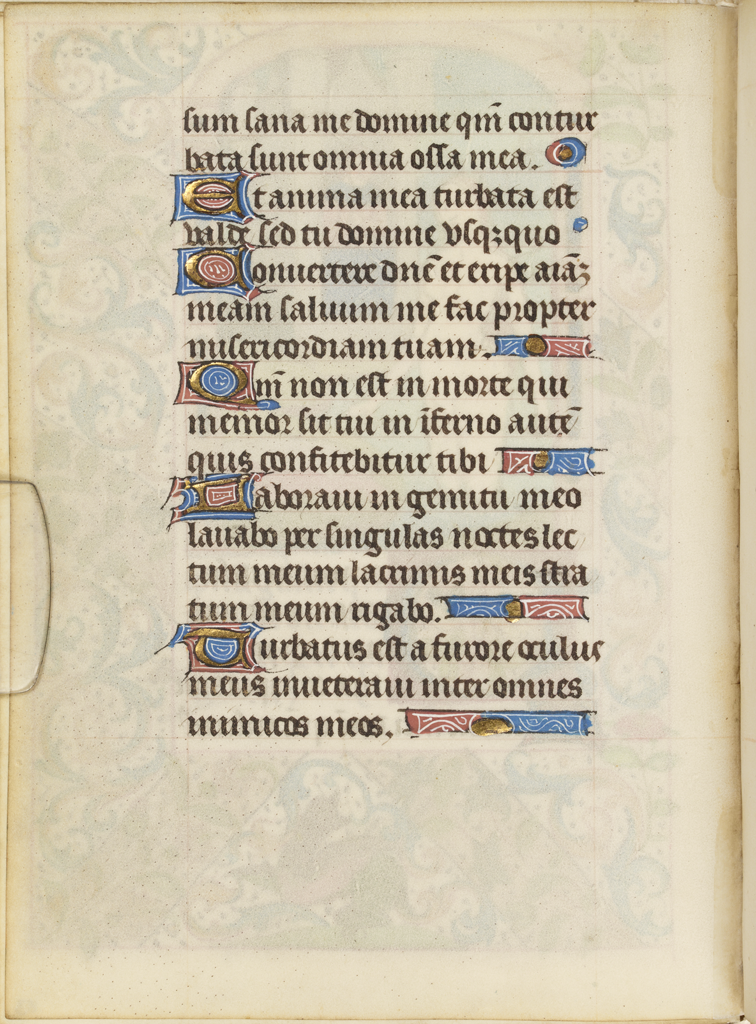 sum sana me domine qm̄ contur
bata sunt omnia ossa mea.
Et anima mea turbata est
valde sed tu domine vsqꝫ quo
Conuertere dn̄e et eripe aīaꝫ
meam saluum me fac propter
misericordiam tuam.
Qm̄ non est in morte qui
memor sit tui in īferno autē
quis confitebitur tibi
Laboraui in gemitu meo
lauabo per singulas noctes lec
tum meum lacrimis meis stra
tum meum rigabo.
Turbatus est a furore oculus
meus inueteraui inter omnes
inimicos meos.